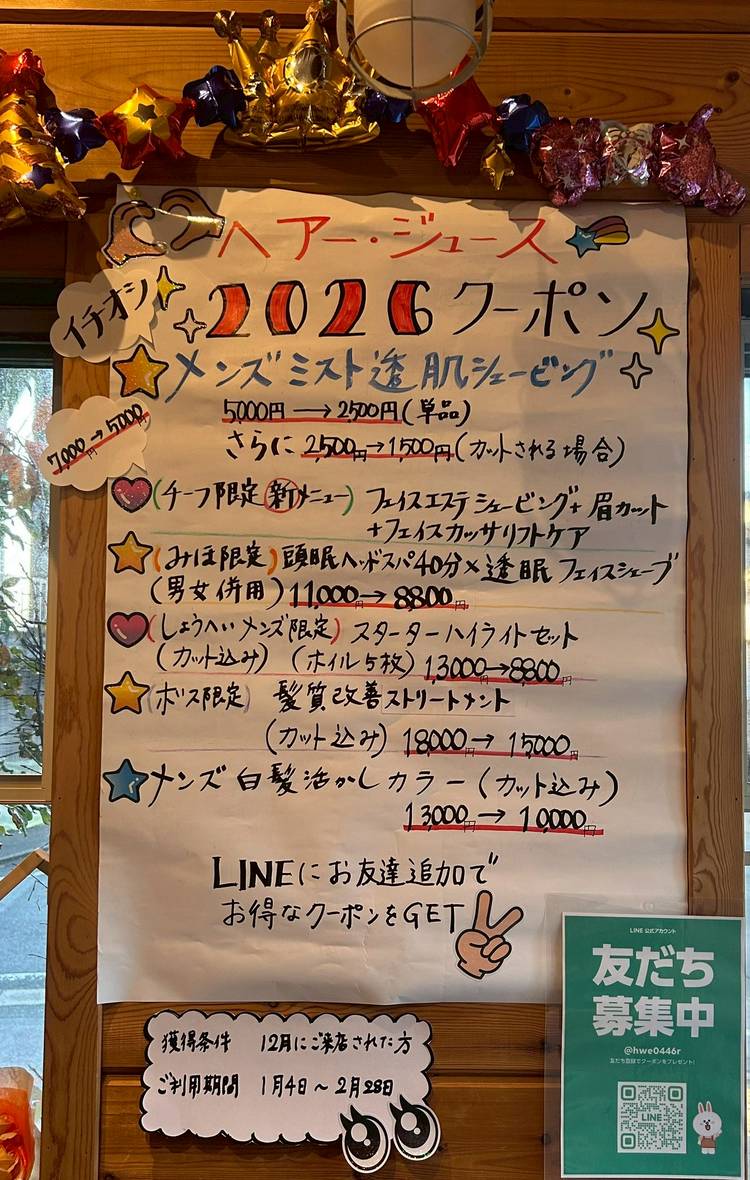 ヘアー・ジュース
イチオシ
2026クーポン
メンズミスト透肌シェービング
5000円→2500円(単品)
さらに 2,500円→1,500円(カットされる場合)
7,000円→5,000円
(チーフ限定新メニュー) フェイスエステシェービング+眉カット
+フェイスカッサリフトケア
(みほ限定)頭眠ヘッドスパ40分×透眠フェイスシェーブ
(男女併用)11,000円→8,800円
(しょうへいメンズ限定) スターターハイライトセット
(カット込み) (ホイル5枚) 13,000円→8,800円
(ボス限定) 髪質改善ストリートメント
(カット込み) 18,000円→15,000円
メンズ白髪活かしカラー(カット込み)
13,000円→10,000円
LINEにお友達追加で
お得なクーポンをGET
獲得条件 12月にご来店された方
ご利用期間 1月4日~2月28日
LINE 公式アカウント
友だち
募集中
@hwe0446r
友だち登録でクーポンをプレゼント!
LINE